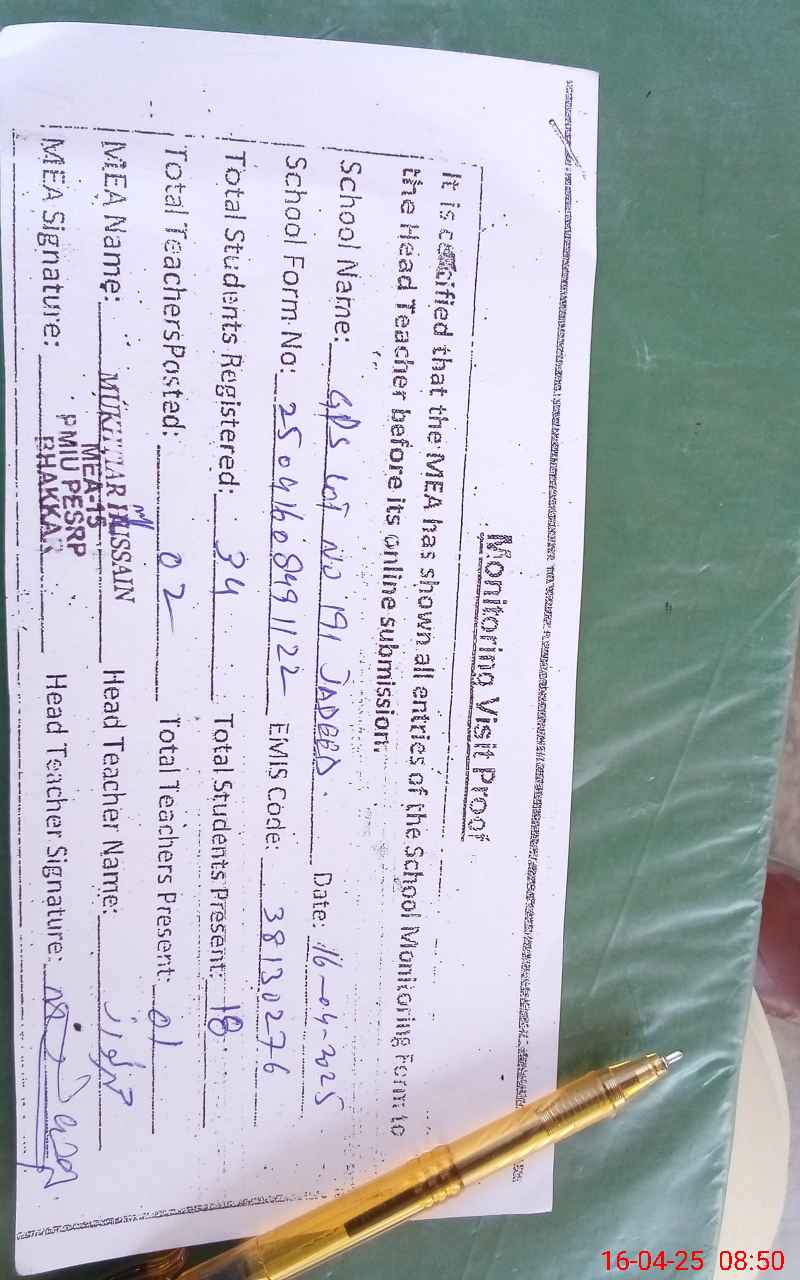 Monitoring Visit Proof
It is certified that the MEA has shown all entries of the School Monitoring Form to
the Head Teacher before its online submission.
School Name: GPS Lot No 191 JADEED. Date: 16-04-2025
School Form No: 25041608491122 EMIS Code: 38130276
Total Students Registered: 34 Total Students Present: 18
Total Teachers Posted: 02 Total Teachers Present: 01
MEA Name: MUKHTIAR HUSSAIN Head Teacher Name:
MEA-15
PMIU PESRP
BHAKKAR
MEA Signature: Head Teacher Signature:
16-04-25 08:50